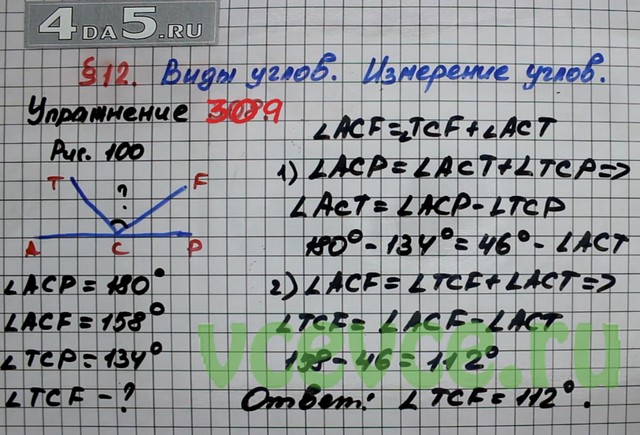 4DA5.RU
§12. Виды углов. Измерение углов.
Упражнение 309
Рис. 100
T ? F
A C P
∠ACP = 180°
∠ACF = 158°
∠TCP = 134°
∠TCF - ?
∠ACF = ∠TCF + ∠ACT
1) ∠ACP = ∠ACT + ∠TCP =>
∠ACT = ∠ACP - ∠TCP
180° - 134° = 46° - ∠ACT
2) ∠ACF = ∠TCF + ∠ACT =>
∠TCF = ∠ACF - ∠ACT
158 - 46 = 112°
Ответ: ∠TCF = 112°.
vcevce.ru